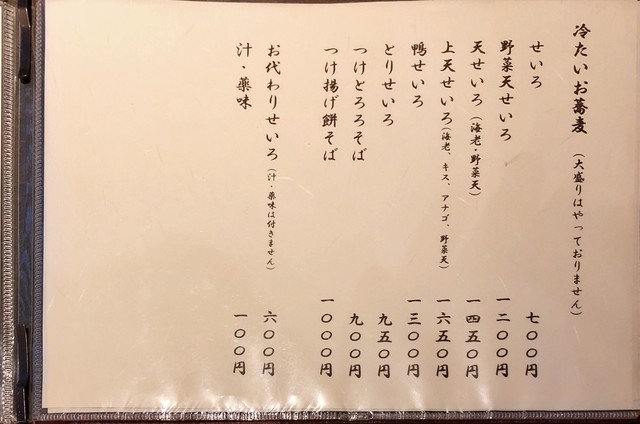 冷たいお蕎麦 (大盛りはやっておりません)
せいろ 七〇〇円
野菜天せいろ 一二〇〇円
天せいろ (海老・野菜天) 一四五〇円
上天せいろ (海老、キス、アナゴ、野菜天) 一六五〇円
鴨せいろ 一三〇〇円
とりせいろ 九五〇円
つけとろろそば 九〇〇円
つけ揚げ餅そば 一〇〇〇円
お代わりせいろ (汁・薬味は付きません) 六〇〇円
汁・薬味 一〇〇円